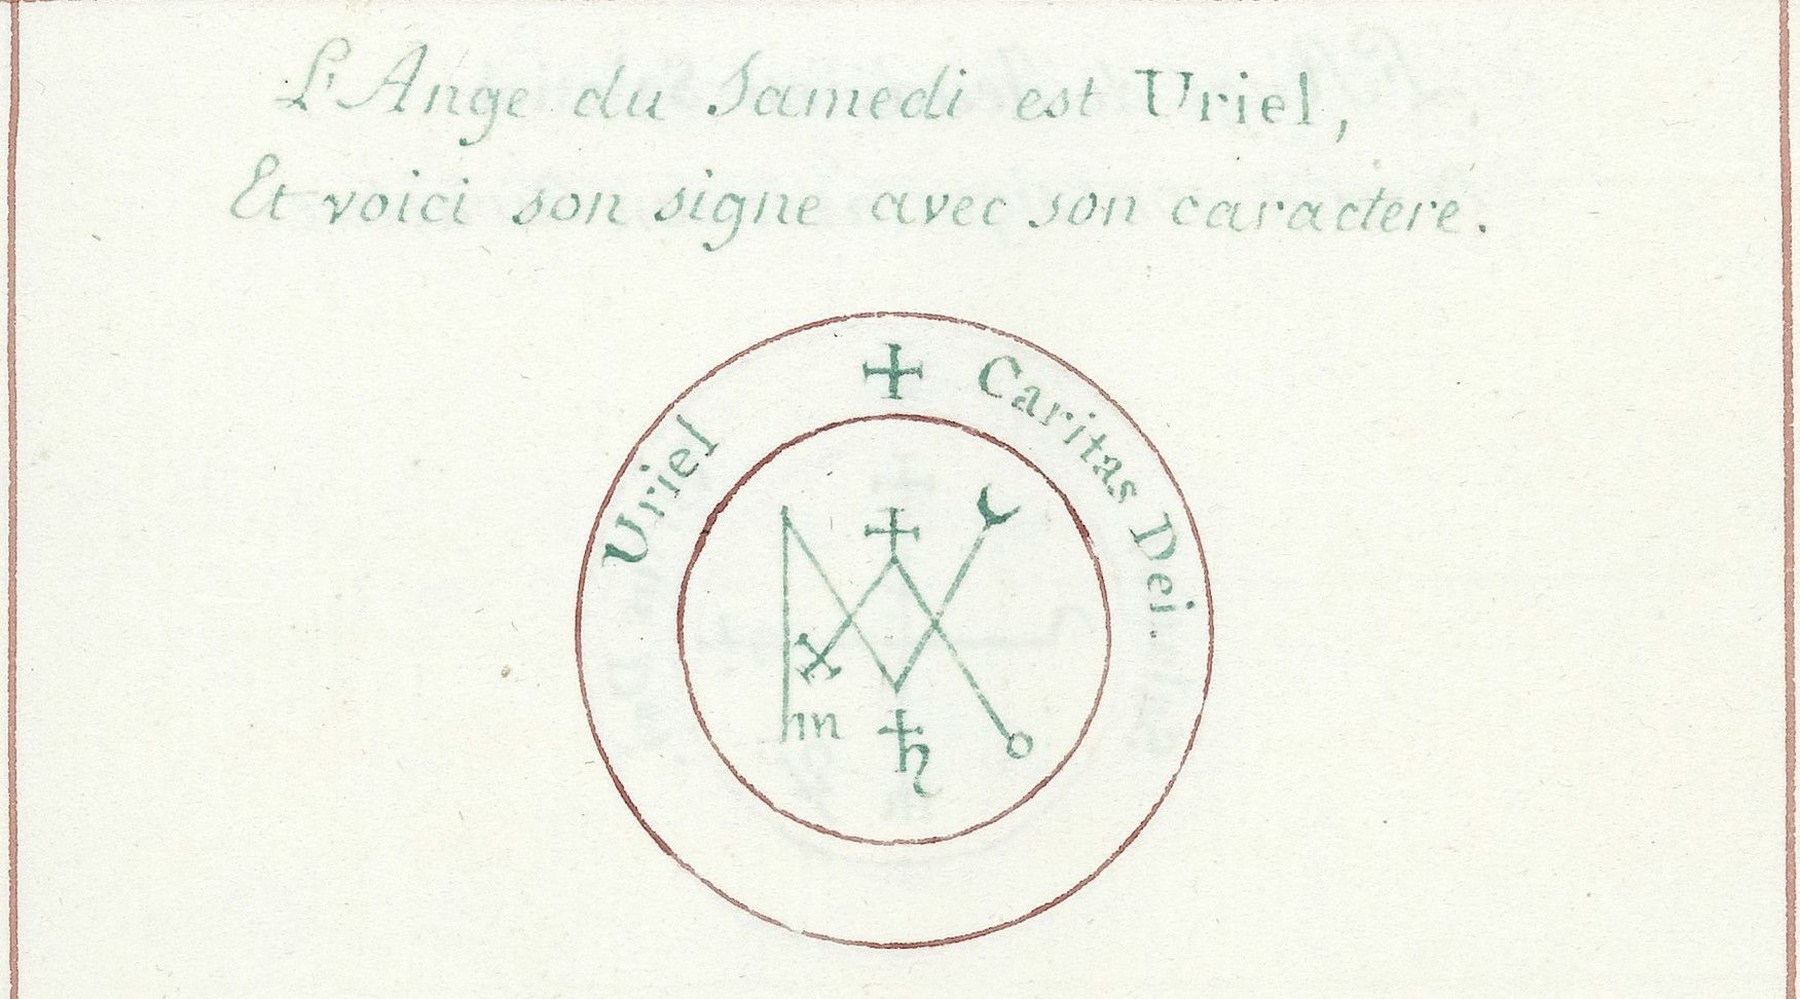 L'Ange du Samedi est Uriel,
Et voici son signe avec son caractere.
Uriel + Caritas Dei.
m